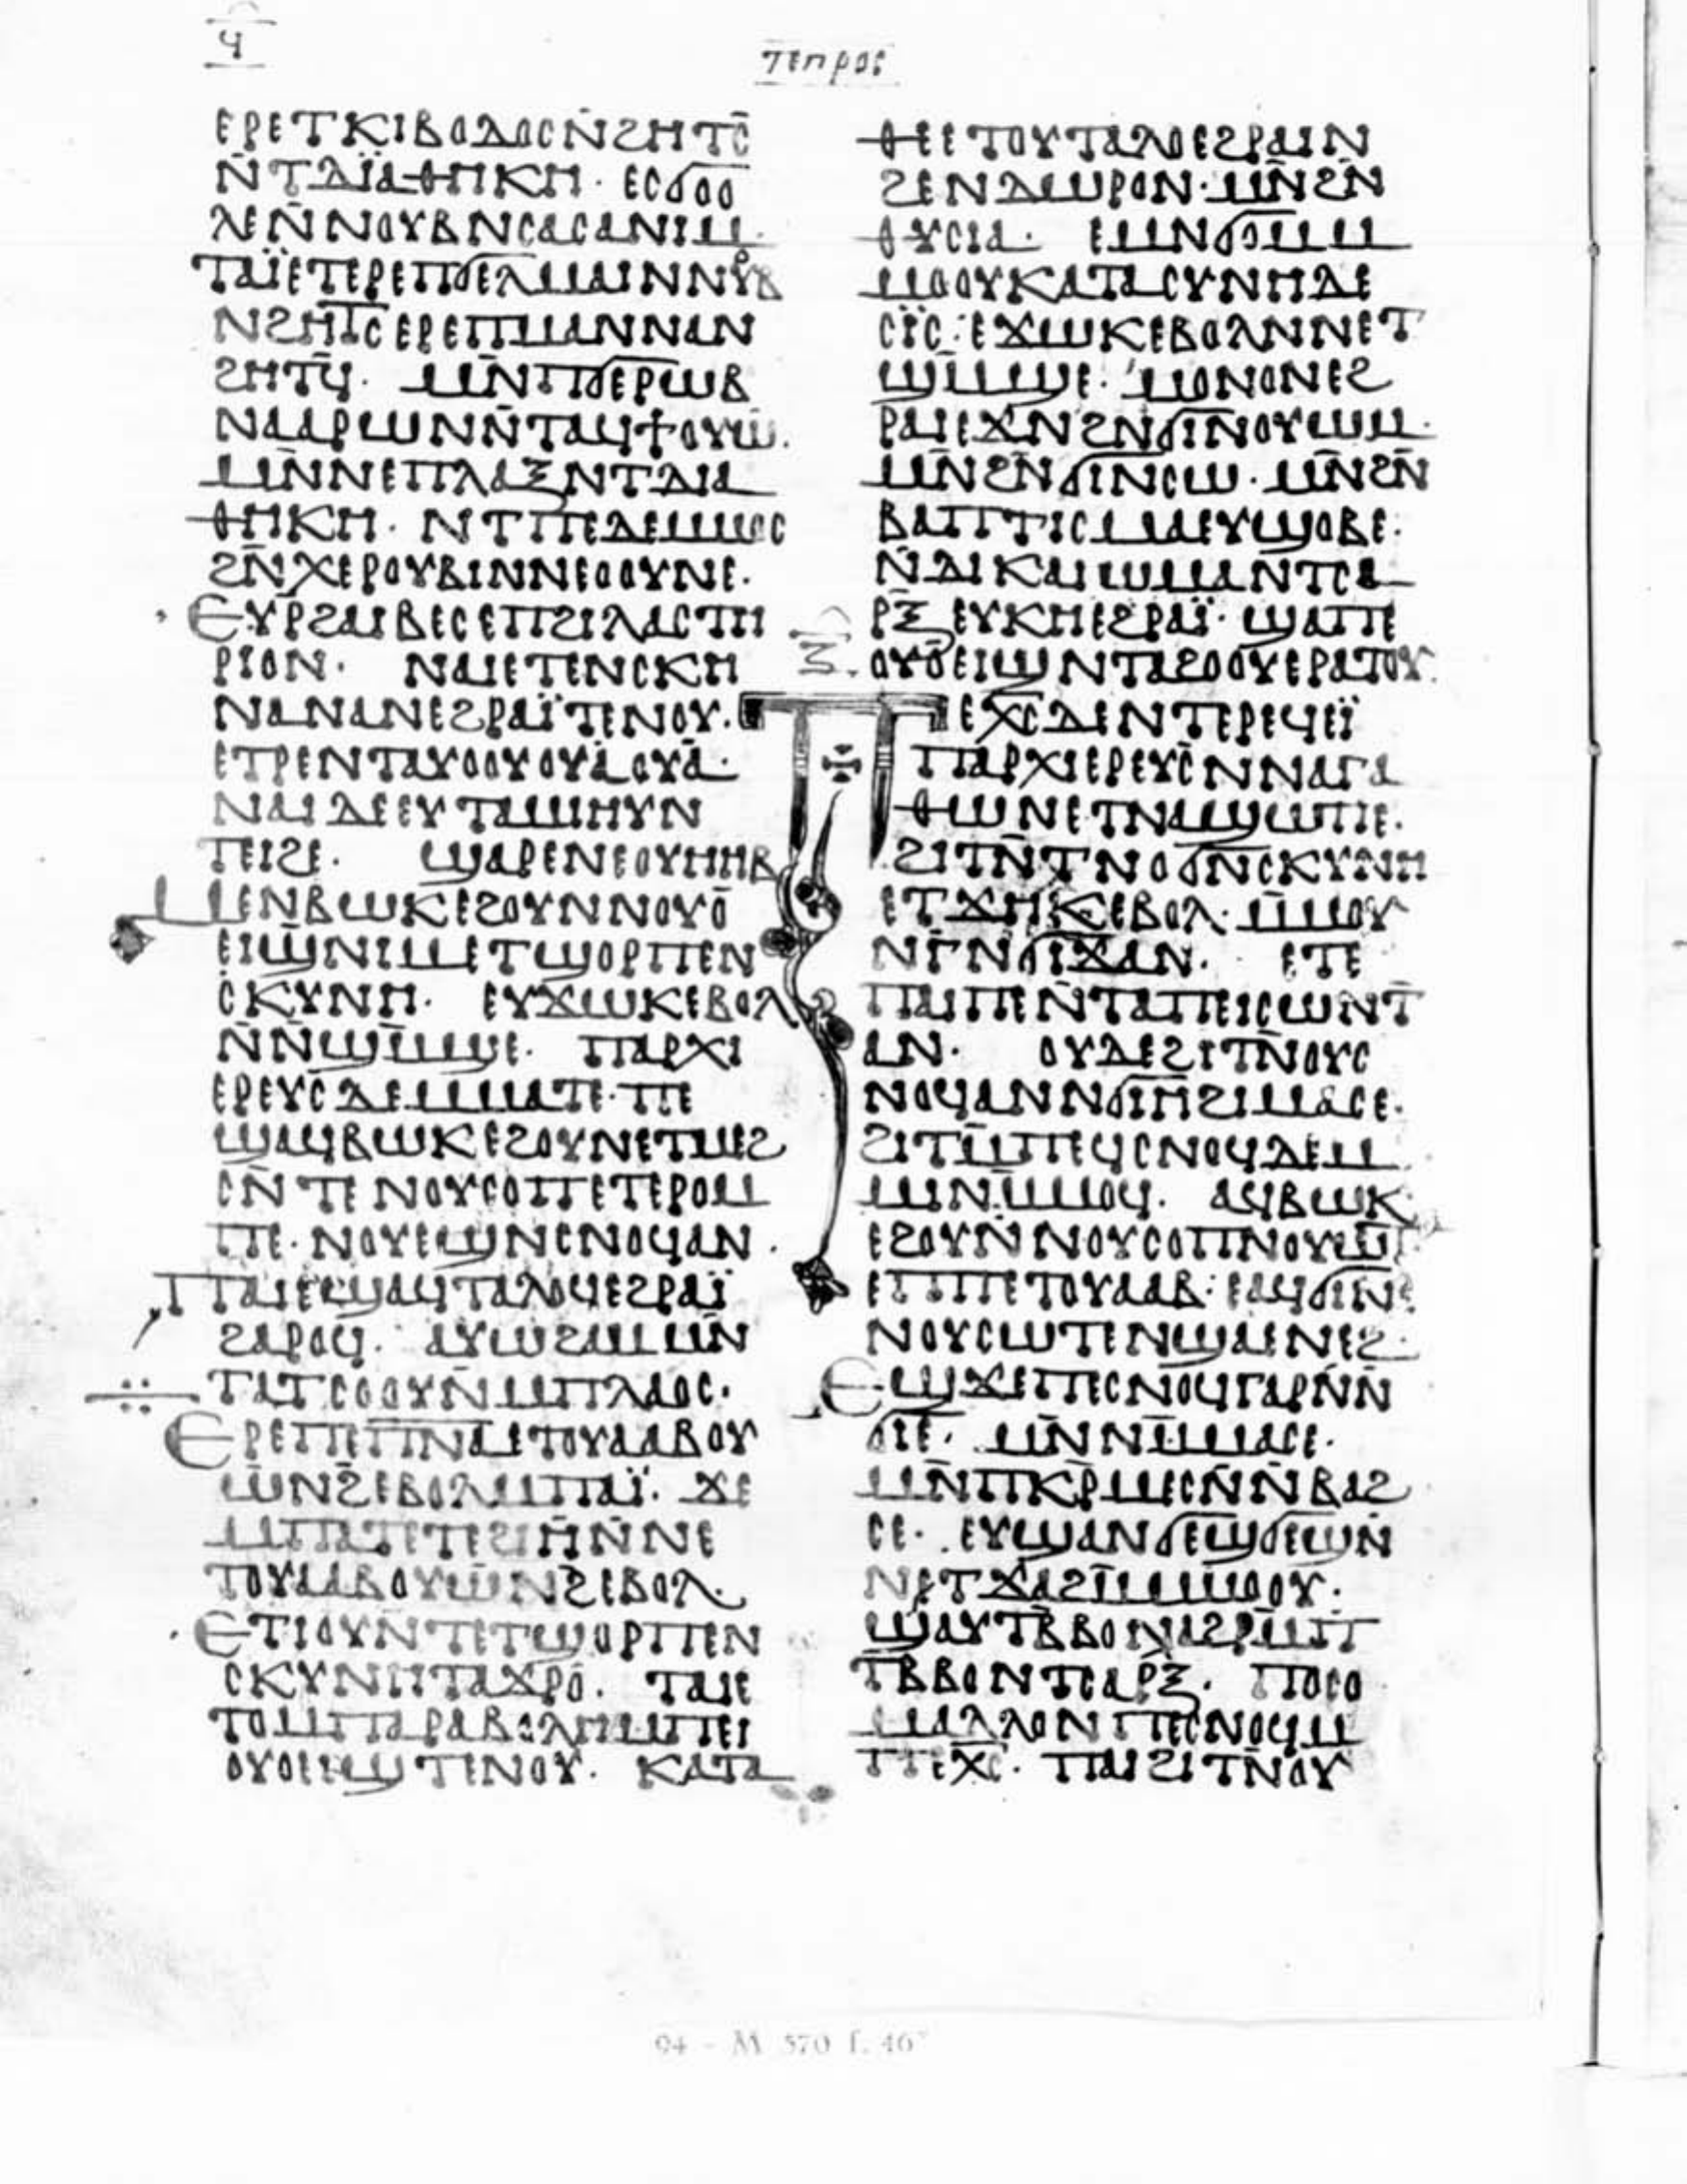 ϥ
ⲧⲉⲡⲣⲟⲥ
ⲉⲣⲉⲧⲕⲓⲃⲟⲇⲟⲥⲛ̄ϩⲏⲧⲥ̄
ⲛ̄ⲧⲇⲓ̈ⲁⲑⲏⲕⲏ· ⲉⲥϭⲟⲟ
ⲗⲉⲛ̄ⲛⲟⲩⲃⲛⲥⲁⲥⲁⲛⲓⲙ·
ⲧⲁⲓ̈ⲉⲧⲉⲣⲉⲡϭⲉⲗⲙⲁⲓⲛⲛⲟⲩⲃ
ⲛϩⲏⲧⲥ̄ⲉⲣⲉⲡⲙⲁⲛⲛⲁⲛ
ϩⲏⲧϥ̄· ⲙⲛ̄ⲡϭⲉⲣⲱⲃ
ⲛⲁⲁⲣⲱⲛⲛ̄ⲧⲁϥϯⲟⲩⲱ·
ⲙⲛ̄ⲛⲉⲡⲗⲁⲝⲛⲧⲇⲓⲁ
ⲑⲏⲕⲏ· ⲛⲧⲡⲉⲇⲉⲙⲙⲟⲥ
ϩⲛ̄ⲭⲉⲣⲟⲩⲃⲓⲛⲛⲉⲟⲟⲩⲛⲉ·
ⲉⲩⲣ̄ϩⲁⲓⲃⲉⲥⲉⲡϩⲓⲗⲁⲥⲧⲏ
ⲣⲓⲟⲛ· ⲛⲁⲓⲉⲧⲉⲛⲥⲕⲏ
ⲛⲁⲛⲁⲛⲉϩⲣⲁⲓ̈ⲧⲉⲛⲟⲩ·
ⲉⲧⲣⲉⲛⲧⲁⲩⲟⲟⲩⲟⲩⲁ̄ⲟⲩⲁ̄·
ⲛⲁⲓⲇⲉⲉⲩⲧⲁⲙⲏⲩⲛ
ⲧⲉⲓϩⲉ· ϣⲁⲣⲉⲛⲉⲟⲩⲏⲏⲃ
ⲙⲉⲛⲃⲱⲕⲉϩⲟⲩⲛⲛⲟⲩⲟ̄
ⲉⲓϣⲛⲓⲙⲉⲧϣⲟⲣⲡⲉⲛ
ⲥⲕⲩⲛⲏ· ⲉⲩϫⲱⲕⲉⲃⲟⲗ
ⲛ̄ⲛ̄ϣⲙ̄ϣⲉ· ⲡⲁⲣⲭⲓ
ⲉⲣⲉⲩⲥⲇⲉⲙⲙⲁⲧⲉ·ⲡⲉ
ϣⲁϥⲃⲱⲕⲉϩⲟⲩⲛⲉⲧⲙⲉϩ
ⲥⲛ̄ⲧⲉⲛⲟⲩⲥⲟⲡⲉⲧⲉⲣⲟⲙ
ⲡⲉ·ⲛⲟⲩⲉϣⲛⲥⲛⲟϥⲁⲛ·
ⲡⲁⲓⲉϣⲁϥⲧⲁⲗⲟϥⲉϩⲣⲁⲓ̈
ϩⲁⲣⲟϥ· ⲁⲩⲱϩⲁⲙⲙⲛ̄
ⲧⲁⲧⲥⲟⲟⲩⲛ̄ⲙⲡⲗⲁⲟⲥ·
ⲉⲣⲉⲡⲉⲡ̄ⲛ̄ⲁⲉⲧⲟⲩⲁⲁⲃⲟⲩ
ⲱⲛϩ̄ⲉⲃⲟⲗⲙⲡⲁⲓ̈· ϫⲉ
ⲙⲡⲁⲧⲉⲧⲉϩⲓⲏⲛ̄ⲛⲉ
ⲧⲟⲩⲁⲁⲃⲟⲩⲱⲛϩ̄ⲉⲃⲟⲗ·
ⲉⲧⲓⲟⲩⲛ̄ⲧⲉⲧϣⲟⲣⲡⲉⲛ
ⲥⲕⲩⲛⲏⲧⲁϫⲣⲟ̄· ⲧⲁⲓⲉ
ⲧⲟⲙⲡⲁⲣⲁⲃⲟⲗⲏⲙⲡⲉⲓ
ⲟⲩⲟⲉⲓϣⲧⲉⲛⲟⲩ· ⲕⲁⲧⲁ
ⲑⲉⲉⲧⲟⲩⲧⲁⲗⲟⲉϩⲣⲁⲓⲛ
ϩⲉⲛⲇⲱⲣⲟⲛ·ⲙⲛ̄ϩⲛ̄
ⲑⲩⲥⲓⲁ· ⲉⲙⲛϭⲟⲙⲙ
ⲙⲟⲟⲩⲕⲁⲧⲁⲥⲩⲛⲏⲇⲉ
ⲥⲓ̈ⲥ·ⲉϫⲱⲕⲉⲃⲟⲗⲛⲛⲉⲧ
ϣⲙ̄ϣⲉ· ⲙⲟⲛⲟⲛⲉϩ
ⲣⲁⲓⲉϫⲛϩⲛϭⲓⲛⲟⲩⲱⲙ·
ⲙⲛ̄ϩⲛ̄ϭⲓⲛⲥⲱ· ⲙⲛ̄ϩⲛ̄
ⲃⲁⲡⲧⲓⲥⲙⲁⲉⲩϣⲟⲃⲉ·
ⲛ̄ⲇⲓⲕⲁⲓⲱⲙⲁⲛⲧⲥⲁ
ⲣⲝ̄ⲉⲩⲕⲏⲉϩⲣⲁⲓ̈· ϣⲁⲡⲉ
ⲝ̄
ⲟⲩⲟ̄ⲉⲓϣⲛⲧⲁϩⲟⲟⲩⲉⲣⲁⲧⲟⲩ·
ⲡⲉⲭ̄ⲥ̄ⲇⲉⲛⲧⲉⲣⲉϥⲉⲓ̈
ⲡⲁⲣⲭⲓⲉⲣⲉⲩⲥ̄ⲛⲛⲁⲅⲁ
ⲑⲱⲛⲉⲧⲛⲁϣⲱⲡⲉ·
ϩⲓⲧⲛ̄ⲧⲛⲟϭⲛ̄ⲥⲕⲩⲛⲏ
ⲉⲧϫⲏⲕⲉⲃⲟⲗ· ⲙ̄ⲙⲟⲩ
ⲛⲅ̄ⲛϭⲓϫⲁⲛ· ⲉⲧⲉ
ⲡⲁⲓⲡⲉⲛ̄ⲧⲁⲡⲉⲓⲥⲱⲛⲧ̄
ⲁⲛ· ⲟⲩⲇⲉϩⲓⲧⲛ̄ⲟⲩⲥ
ⲛⲟϥⲁⲛⲛϭⲓⲏϩⲓⲙⲁⲥⲉ·
ϩⲓⲧⲙ̄ⲡⲉϥⲥⲛⲟϥⲇⲉⲙ
ⲙⲓⲛ̄ⲙ̄ⲙⲟϥ· ⲁϥⲃⲱⲕ
ⲉϩⲟⲩⲛ̄ⲛⲟⲩⲥⲟⲡⲛⲟⲩⲱⲧ
ⲉⲡⲡⲉⲧⲟⲩⲁⲁⲃ· ⲉⲁϥϭⲓⲛⲉ
ⲛⲟⲩⲥⲱⲧⲉⲛϣⲁⲉⲛⲉϩ·
ⲉϣϫⲉⲡⲉⲥⲛⲟϥⲅⲁⲣⲛ̄ⲛ
ϭⲓⲉ· ⲙⲛ̄ⲛⲙ̄ⲙⲁⲥⲉ·
ⲙⲛ̄ⲡⲕⲣ̄ⲙⲉⲥⲛ̄ⲛ̄ⲃⲁϩ
ⲥⲉ· ⲉⲩϣⲁⲛϭⲉϣϭⲉϣⲛ̄
ⲛⲉⲧϫⲁϩⲙ̄ⲙⲟⲟⲩ·
ϣⲁⲩⲧⲃ̄ⲃⲟⲛⲁϩⲣⲙ̄ⲡ
ⲧⲃ̄ⲃⲟⲛⲧⲥⲁⲣⲝ̄· ⲡⲟⲥⲟ
ⲙⲁⲗⲗⲟⲛⲡⲉⲥⲛⲟϥⲙ
ⲡⲉⲭ̄ⲥ̄· ⲡⲁⲓϩⲓⲧⲛ̄ⲟⲩ
94 - M 570 f. 46ᵛ